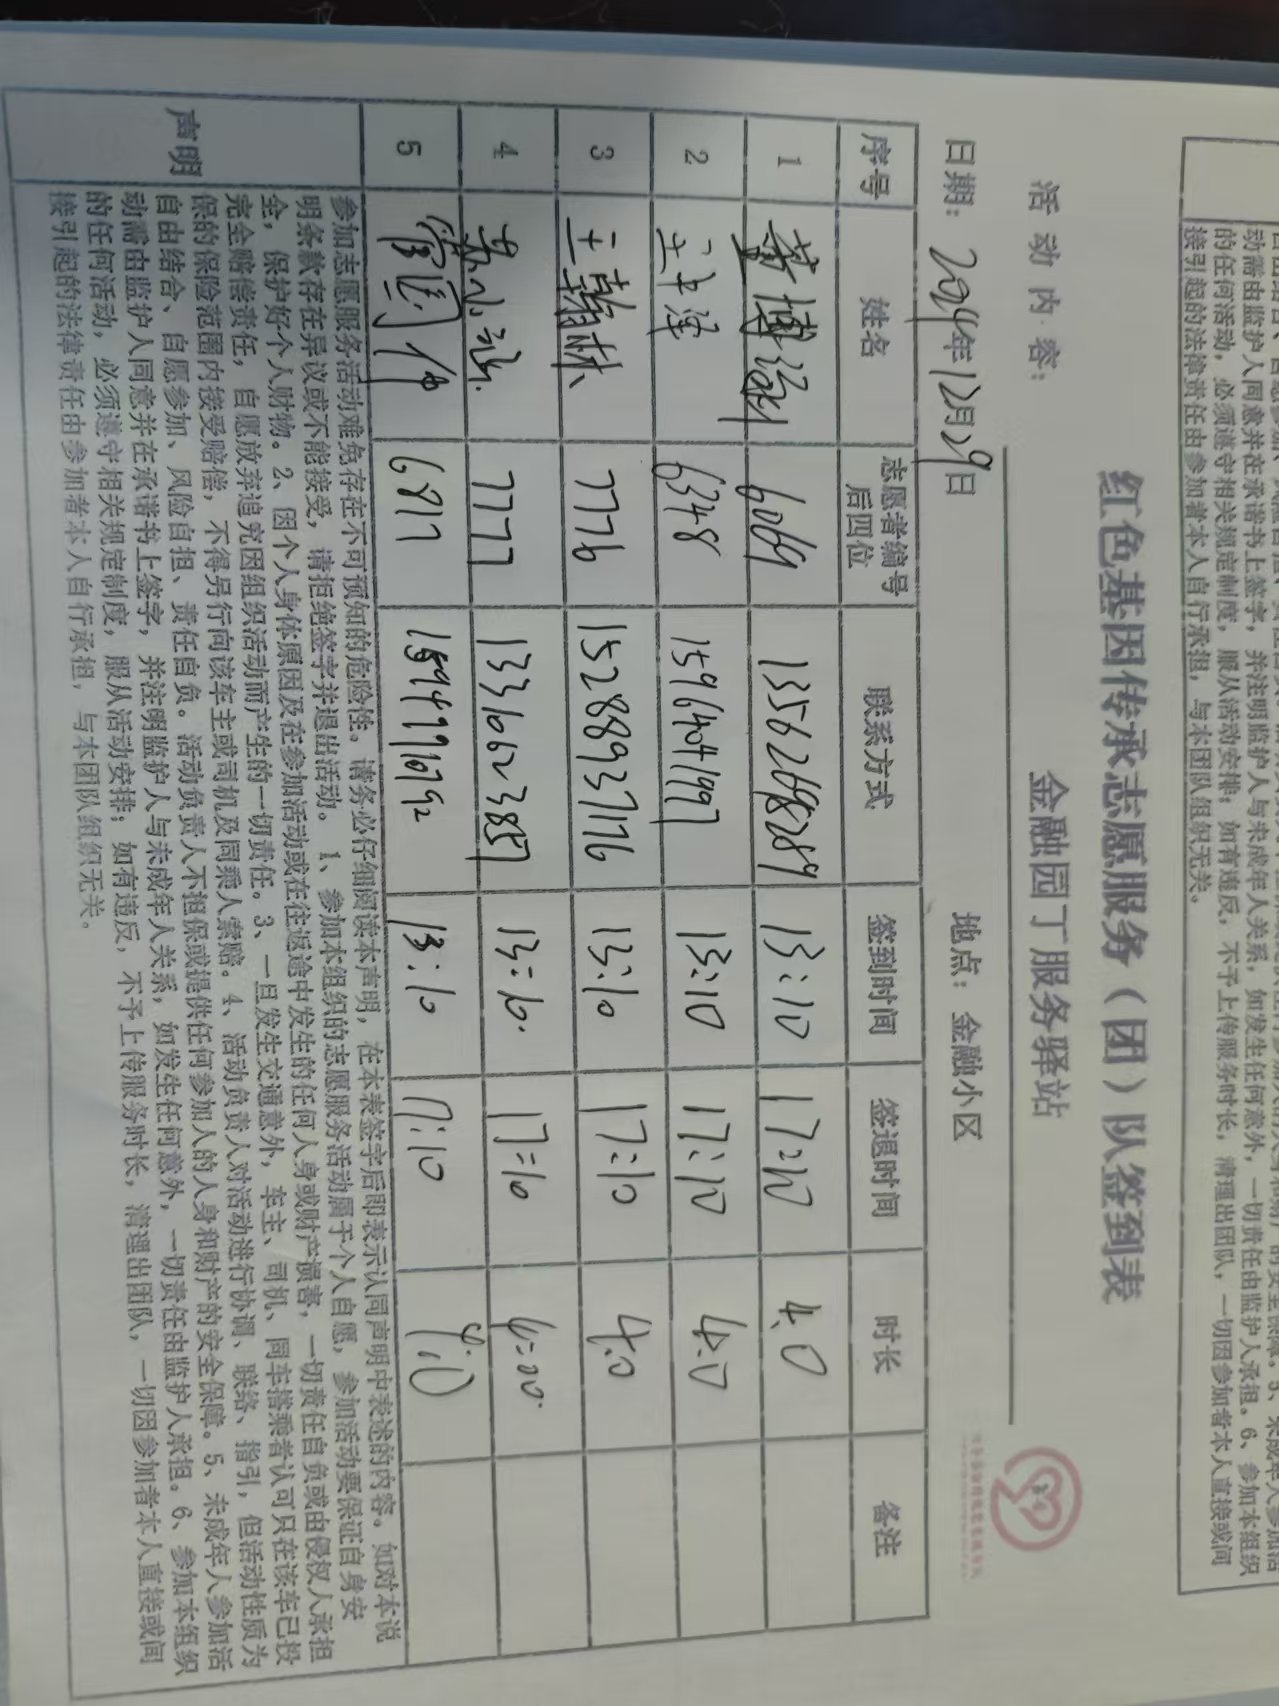 红色基因传承志愿服务（团）队签到表
活动内容： 金融园丁服务驿站
日期：2024年12月29日 地点：金融小区
序号 姓名 志愿者编号后四位 联系方式 签到时间 签退时间 时长 备注
1 6069 13562698289 13:10 17:10 4.0
2 6348 15964041997 13:10 17:10 4.0
3 王翰林 7776 15288937176 13:10 17:10 4.0
4 7777 13310623857 13:10. 17:10 4:00.
5 6877 13:10 17:10
声明
参加志愿服务活动难免存在不可预知的危险性。请务必仔细阅读本声明，在本表签字后即表示认同声明中表述的内容。如对本说
明条款存在异议或不能接受，请拒绝签字并退出活动。 1、参加本组织的志愿服务活动属于个人自愿，参加活动要保证自身安
全，保护好个人财物。2、因个人身体原因及在参加活动或在往返途中发生的任何人身或财产损害，一切责任自负或由侵权人承担
完全赔偿责任，自愿放弃追究因组织活动而产生的一切责任。3、一旦发生交通意外，车主、司机、同车搭乘者认可只在该车已投
保的保险范围内接受赔偿，不得另行向该车主或司机及同乘人索赔。4、活动负责人对活动进行协调、联络、指引，但活动性质为
自由结合、自愿参加、风险自担、责任自负。活动负责人不担保或提供任何参加人的人身和财产的安全保障。5、未成年人参加活
动需由监护人同意并在承诺书上签字，并注明监护人与未成年人关系，如发生任何意外，一切责任由监护人承担。6、参加本组织
的任何活动，必须遵守相关规定制度，服从活动安排；如有违反，不予上传服务时长，清理出团队，一切因参加者本人直接或间
接引起的法律责任由参加者本人自行承担，与本团队组织无关。
动需由监护人同意并在承诺书上签字，并注明监护人与未成年人关系，如发生任何意外，一切责任由监护人承担。6、参加本组织
的任何活动，必须遵守相关规定制度，服从活动安排；如有违反，不予上传服务时长，清理出团队，一切因参加者本人直接或间
接引起的法律责任由参加者本人自行承担，与本团队组织无关。